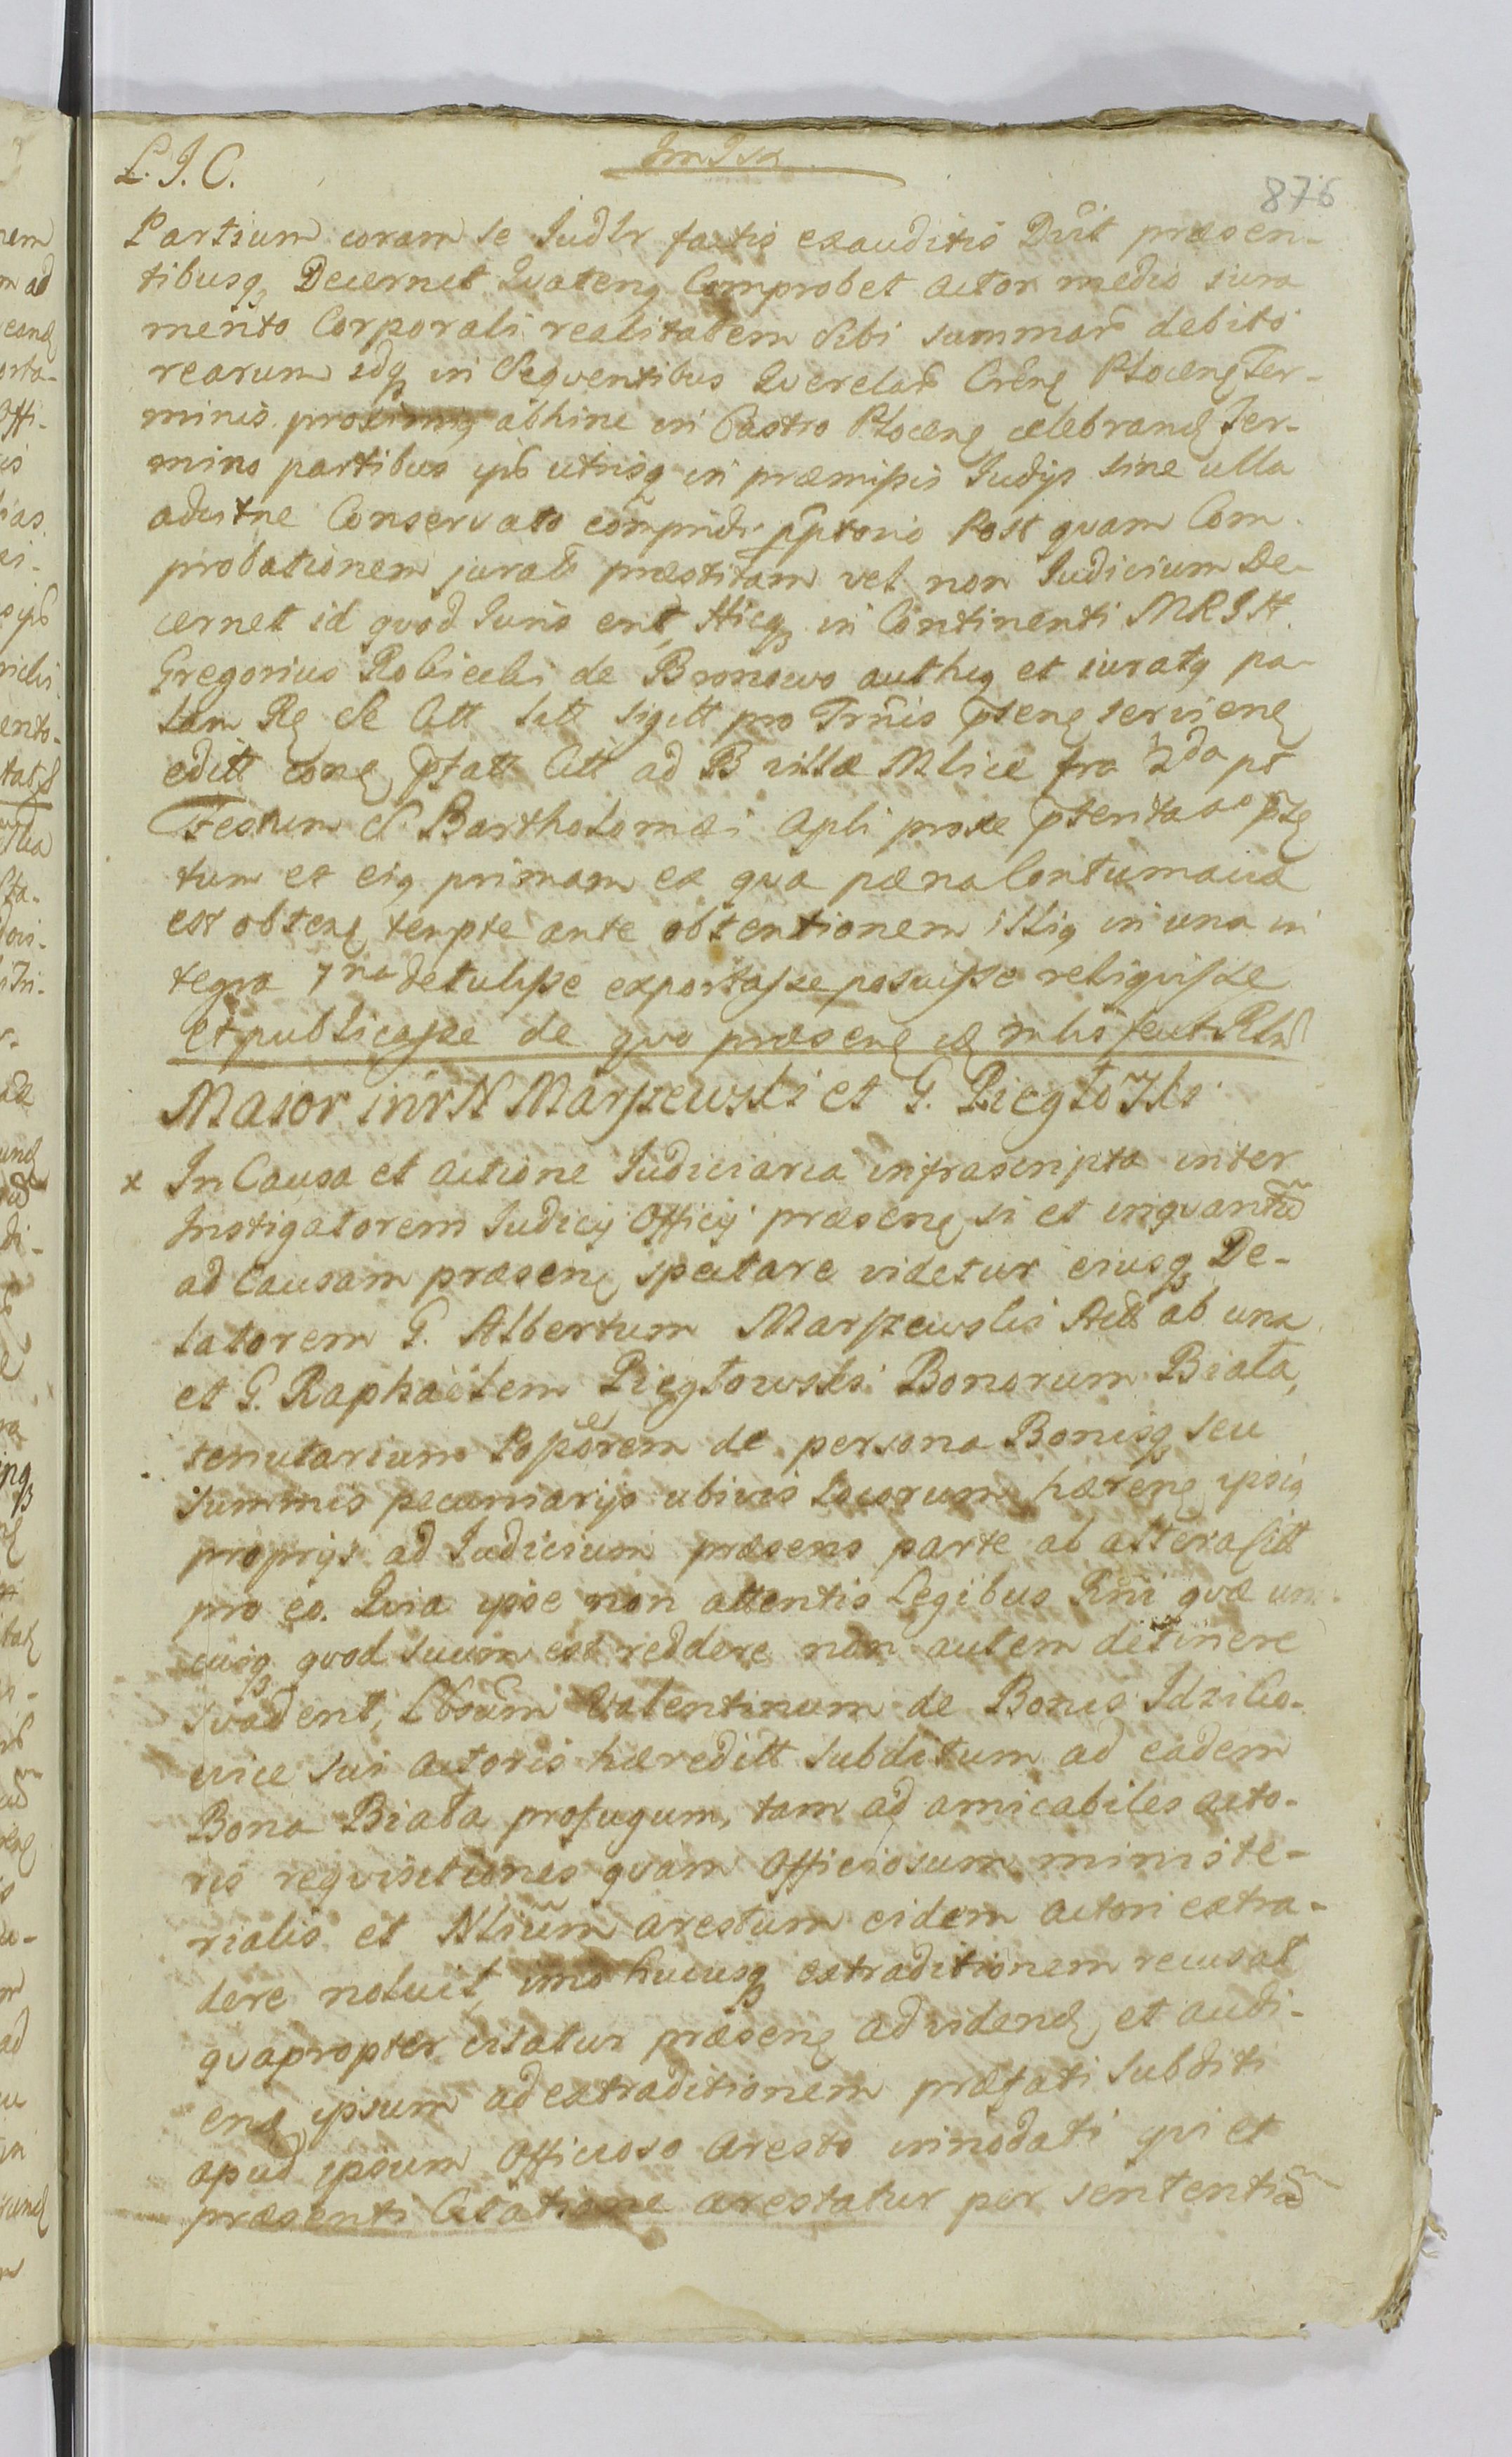 L. J. C.
876
Partium coram se Iudlr factis exauditis Duit præsen-
tibusq Decernet Quateng Comprobet actor medio iura
mento Corporali realitatem sibi summar debito
rearum idq in seqventibus Querelar Crêng Ploceng Ter-
minis proximis abhinc in Castro Ploceng celebrand Ter-
mino partibus ipis utrisq in præmißis Iudijs sine ulla
adcitne Conservato comprndi pptorio Post quam Com
probationem jurats præstitam vel non Iudicium De-
cernet id quod Iuris erit, Hicq in Continenti MRSH
Gregorius Robicchi de Bronowo authg et iuratg pa-
lam Rg se Citt litt sigitt pro Trnis pseng servieng
editt cong pfatt Citt ad B villæ Mlice fra 2da pt
Festum S Bartholomæi Apli proxe pterita ao pte
tum et eig primam ex qva pæna Contumaciæ
est obteng tempte ante obtentionem illig in una in
tegra 7na detuliße exportaße posuiße reliquiße
et publicaße de quo præseng es mlis fecit Rlm
Maior inr N Marszewski et G. Piegłowski
x In Causa et actione Iudiciaria infrascripta inter
Instigatorem Iudicij Officij præseng si et inqvantu
ad Causam præseng spectare videtur eiusq De-
latorem G. Albertum Marszewski Act ab una
et G. Raphaëlem Piegłowski Bonorum Biała,
tenutarium Poßeorem de persona Bonisq seu
summis pecuniarijs ubivis Locorum hæreng ipsig
proprijs ad Iudicium præsens parte ab altera Citt
pro eo. Quia ipse non attentis Legibus Rni qvæ uni-
cuiq quod suum est reddere non autem detinere
svadent, Lborm Valentinum de Bonis Idziko-
vice sui actoris hæreditt subditum ad eadem
Bona Biała profugum, tam ad amicabiles acto-
ris reqvisitiones quam Officiosum ministe-
rialis et Nlium arestum eidem actori extra-
dere noluit, imo hucusq extraditionem recusat
qvapropter citatur præseng ad videnḋ et audi-
enḋ ipsum ad extraditionem præfati subditi
apud ipsum Officioso aresto innodati qvi et
præsenti Citatione arestatur per sententiã